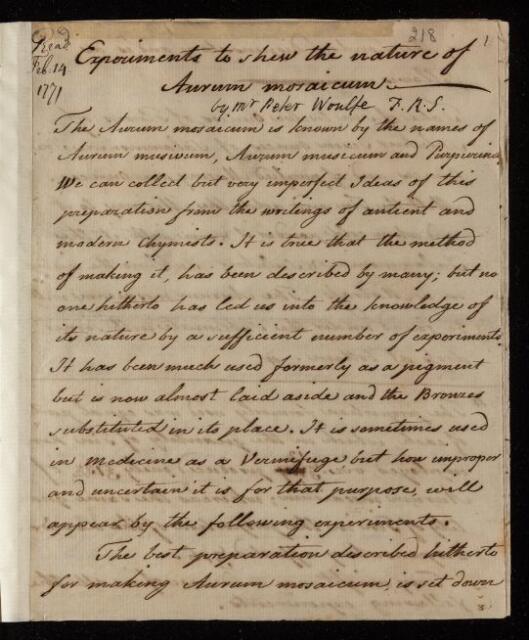 218
1
Read
Feb. 14
1771
Experiments to shew the nature of
Aurum mosaicum
by Mr Peter Woulfe F.R.S.
The Aurum mosaicum is known by the names of
Aurum musivum, Aurum musicum and Purpurina
We can collect but very imperfect Ideas of this
preparation from the writings of antient and
modern Chymists. It is true that the method
of making it, has been described by many; but no
one hitherto has led us into the knowledge of
its nature by a sufficient number of experiments
It has been much used formerly as a pigment
but is now almost laid aside and the Bronzes
substituted in its place. It is sometimes used
in Medicine as a Vermifuge but how improper
and uncertain it is for that purpose, will
appear by the following experiments.
The best preparation described hitherto
for making Aurum mosaicum, is set down